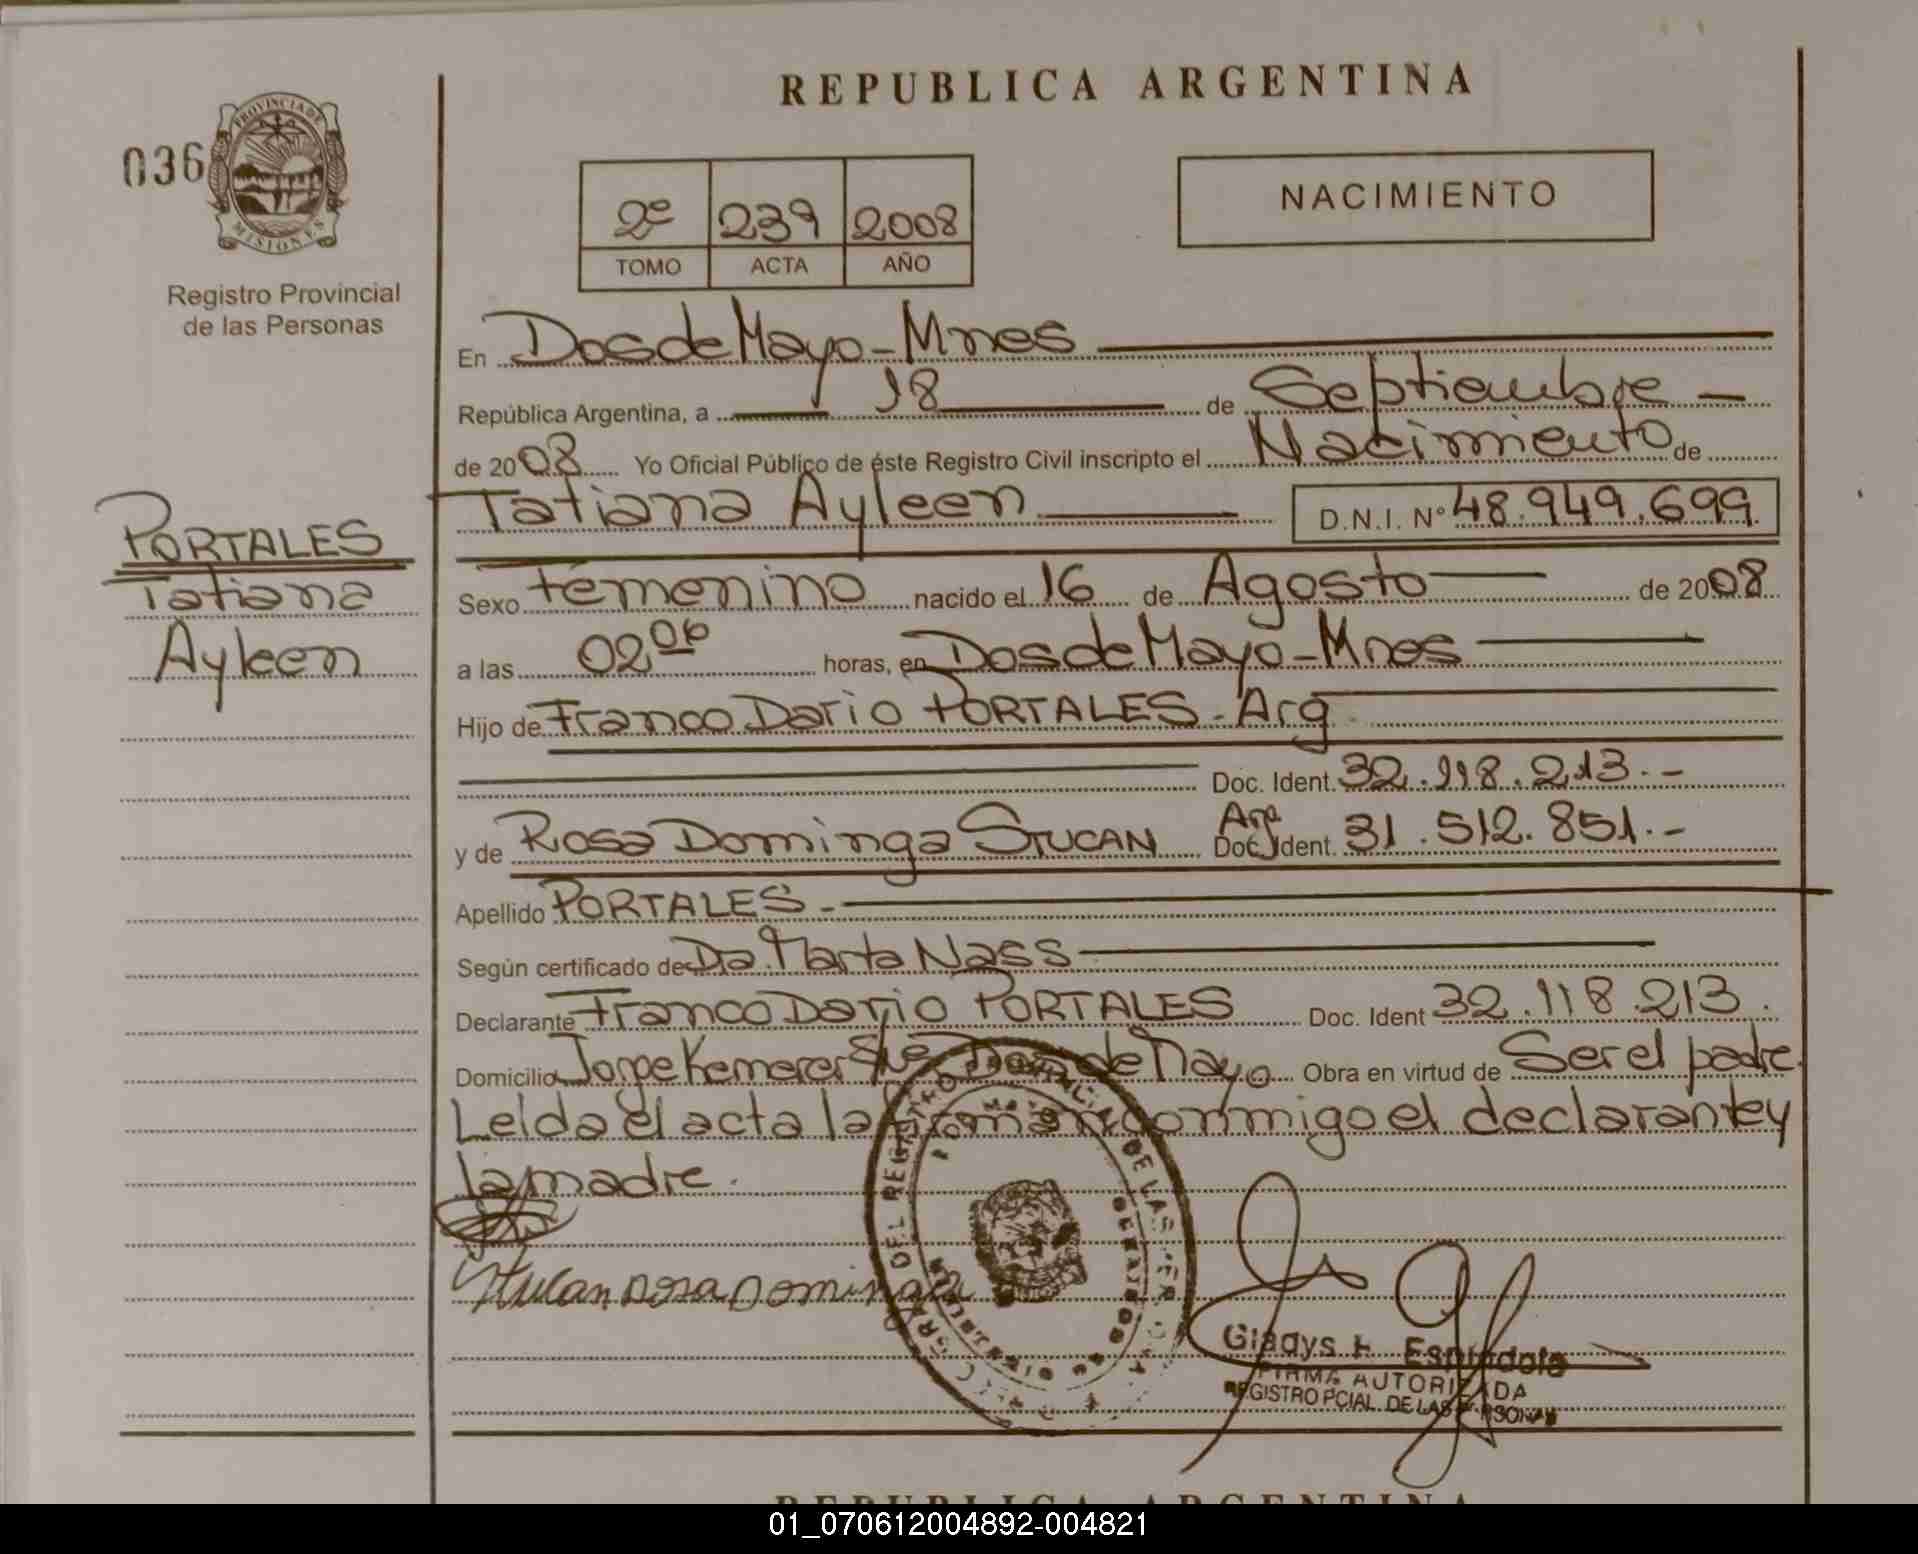 REPUBLICA ARGENTINA
036
PROVINCIA DE
MISIONES
Registro Provincial
de las Personas
NACIMIENTO
2º 239 2008
TOMO ACTA AÑO
En Dos de Mayo - Mnes
República Argentina, a 18 de Septiembre
de 2008 Yo Oficial Público de éste Registro Civil inscripto el Nacimiento de
Tatiana Ayleen D.N.I. Nº 48.949.699
PORTALES
Tatiana
Ayleen
Sexo femenino nacido el 16 de Agosto de 2008
a las 02 06 horas, en Dos de Mayo - Mnes
Hijo de Franco Dario PORTALES - Arg
Doc. Ident. 32.118.213.-
y de Rosa Dominga STUCAN Arg Doc. Ident. 31.512.851.-
Apellido PORTALES.-
Según certificado de Da. Marta Nass
Declarante Franco Dario PORTALES Doc. Ident 32.118.213.
Domicilio Jorge Kemerer Dos de Mayo Obra en virtud de Ser el padre.
Leida el acta la firman conmigo el declarante y
la madre.
Stucan Rosa Dominga
Gladys Espindola
FIRMA AUTORIZADA
REGISTRO PCIAL. DE LAS PERSONAS
REPUBLICA ARGENTINA
01_070612004892-004821